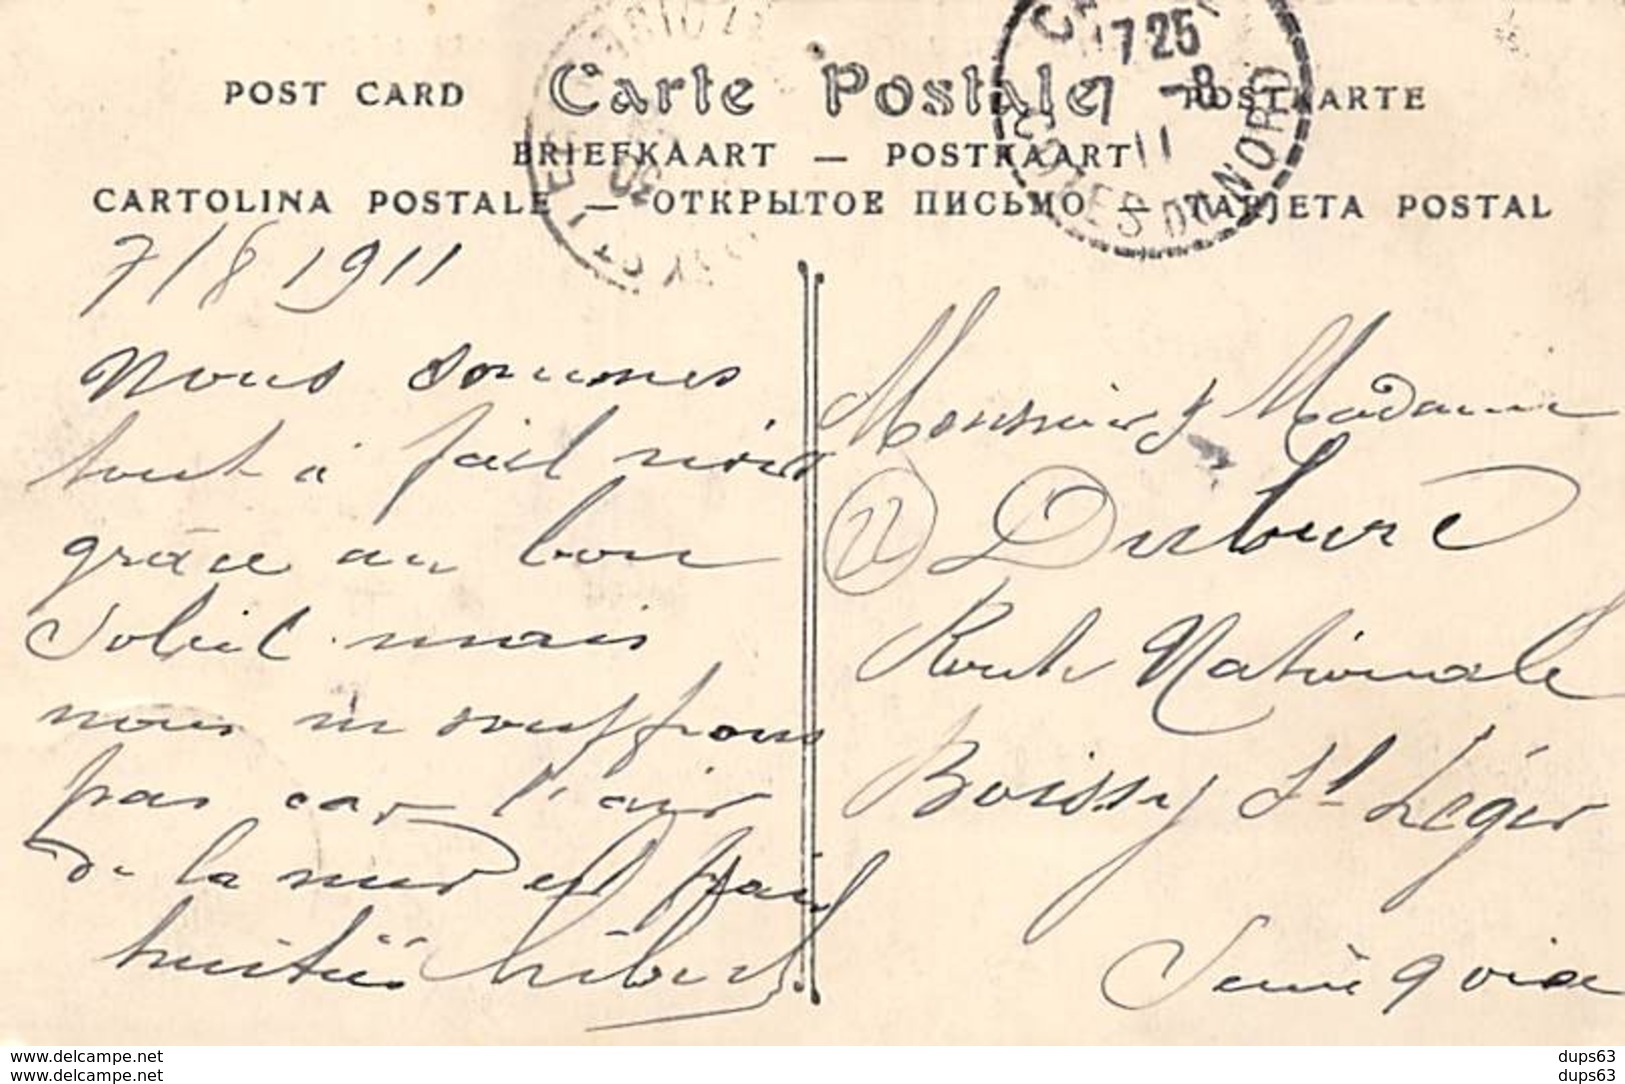 POST CARD Carte Postale POSTKARTE
BRIEFKAART — POSTKAART
CARTOLINA POSTALE — ОТКРЫТОЕ ПИСЬМО — TARJETA POSTAL
7 25
7 -8
11
COTES DU NORD
7/8 1911
Nous sommes
tout à fait noirs
grâce au bon
Soleil mais
nous en souffrons
pas car l'air
de la mer est frais
Amitiés
Monsieur & Madame
22
Dubure
Route Nationale
Boissy St Léger
Seine & Oise
www.delcampe.net
www.delcampe.net
dups63
dups63